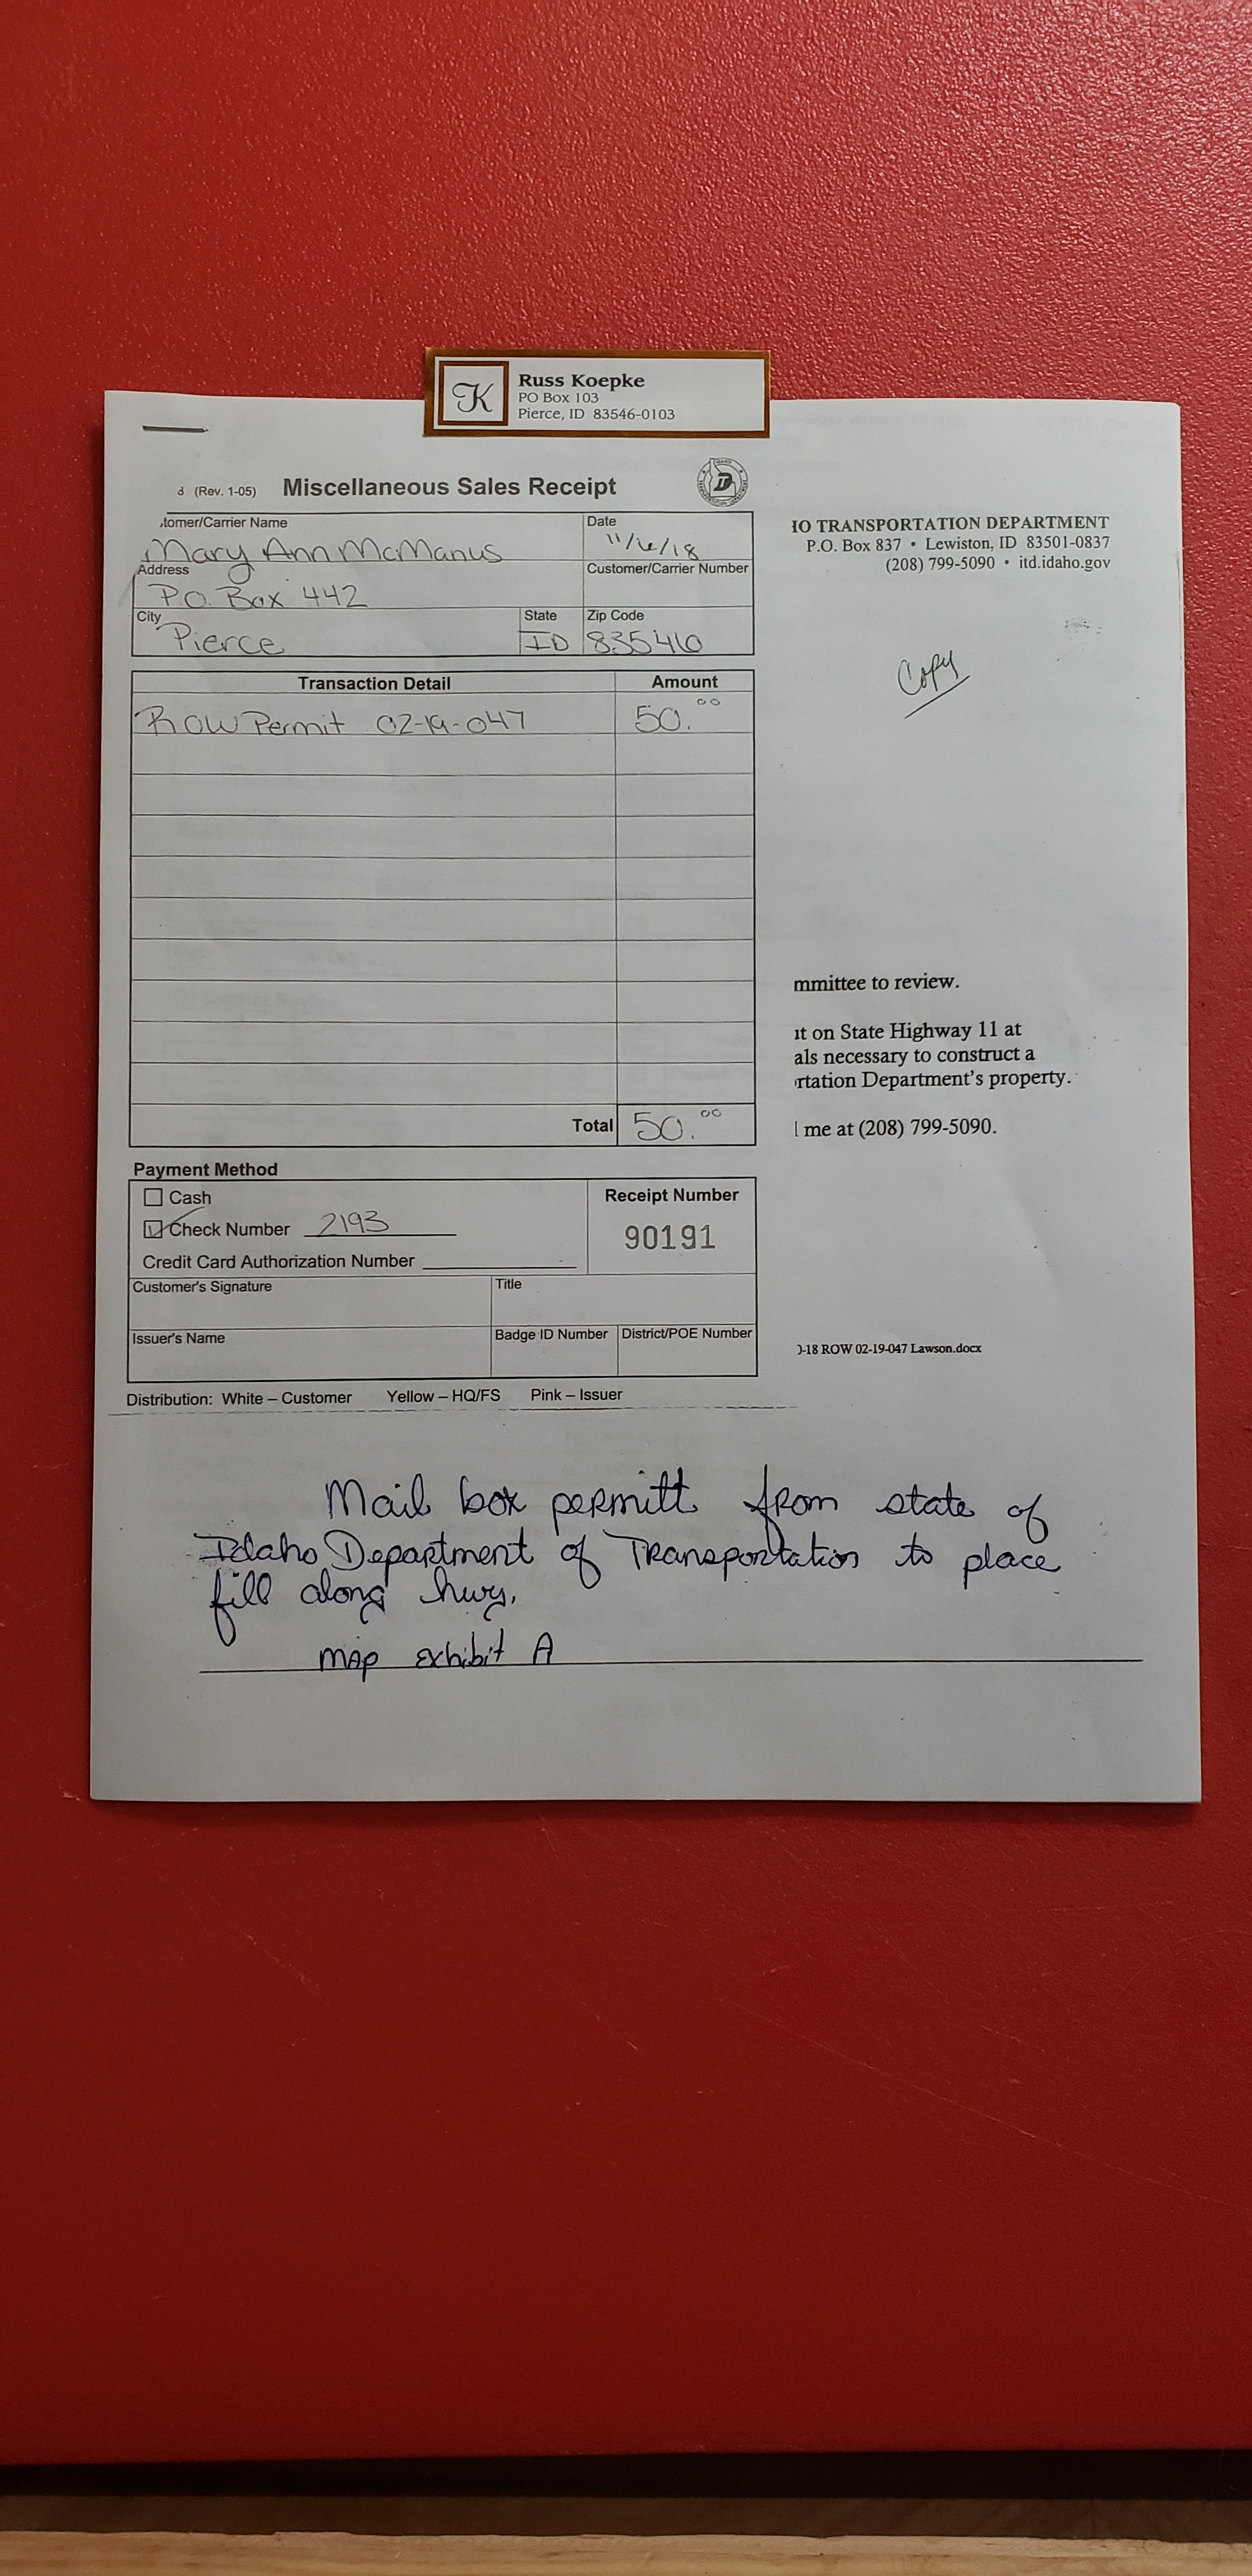 K
Russ Koepke
PO Box 103
Pierce, ID 83546-0103
(Rev. 1-05) Miscellaneous Sales Receipt
tomer/Carrier Name
Mary Ann McManus
Date
11/6/18
Address
P.O. Box 442
Customer/Carrier Number
City
Pierce
State
ID
Zip Code
83546
IO TRANSPORTATION DEPARTMENT
P.O. Box 837 • Lewiston, ID 83501-0837
(208) 799-5090 • itd.idaho.gov
Copy
Transaction Detail Amount
ROW Permit 02-19-047 50.00
Total 50.00
mmittee to review.
it on State Highway 11 at
als necessary to construct a
rtation Department's property.
l me at (208) 799-5090.
Payment Method
Cash
Check Number 2193
Credit Card Authorization Number
Receipt Number
90191
Customer's Signature
Title
Issuer's Name
Badge ID Number
District/POE Number
-18 ROW 02-19-047 Lawson.docx
Distribution: White – Customer Yellow – HQ/FS Pink – Issuer
Mail box permitt from state of
Idaho Department of Transportation to place
fill along hwy.
map exhibit A